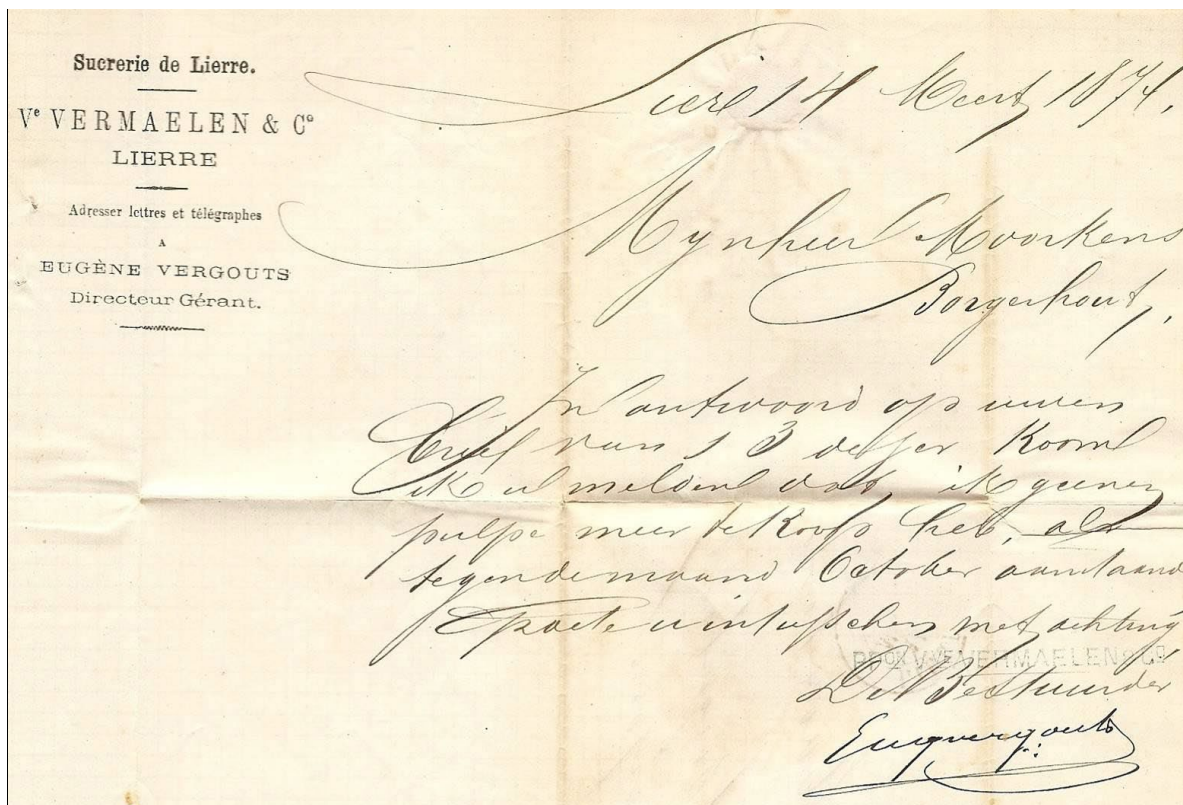 Sucrerie de Lierre.
Vᵉ VERMAELEN & Cᵒ
LIERRE
Adresser lettres et télégraphes
A
EUGÈNE VERGOUTS
Directeur Gérant.
Lier 14 Meert 1874.
Mynheer Moorkens
Borgerhout,
In antwoord op uwen
brief van 13 dezer Koom
ik u melden dat ik geenen
pulpe meer te Koop heb, als
tegen de maand October aanstaande
met achting
POUR Vᵛᵉ VERMAELEN & Cᵒ
Den Bestuurder
Eug Vergouts